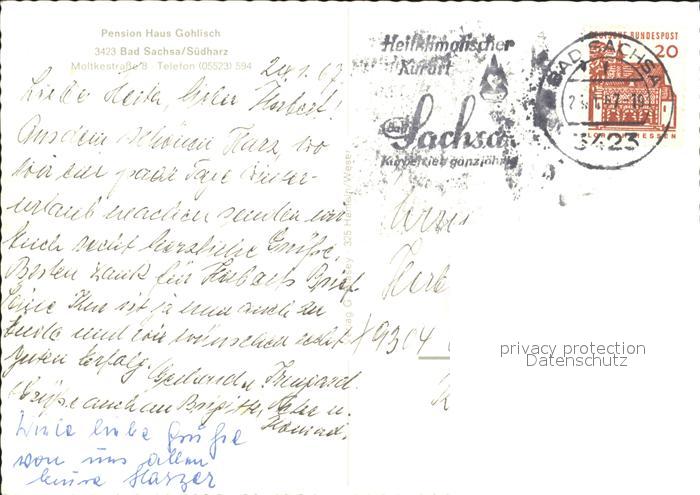 Pension Haus Gohlisch
3423 Bad Sachsa/Südharz
Moltkestraße 8 Telefon (05523) 594
24.1.67
Liebe Herta, lieber Herbert
Aus dem schönen Harz, wo
wir ein paar Tage Winter-
urlaub machen senden wir
Euch recht herzliche Grüße.
Besten Dank für Herberts Brief
Seine Kur ist ja nun auch zu
Ende und wir wünschen recht
guten Erfolg.
Gerhard u. Irmgard
Grüße auch an Brigitte, Peter u.
Konrad.
Viele liebe Grüße
von uns allen
Eure Harzer
Heilklimatischer
Kurort
Bad Sachsa
Kurbetrieb ganzjährig
BAD SACHSA
3423
DEUTSCHE BUNDESPOST
20
Herb
9304
privacy protection
Datenschutz